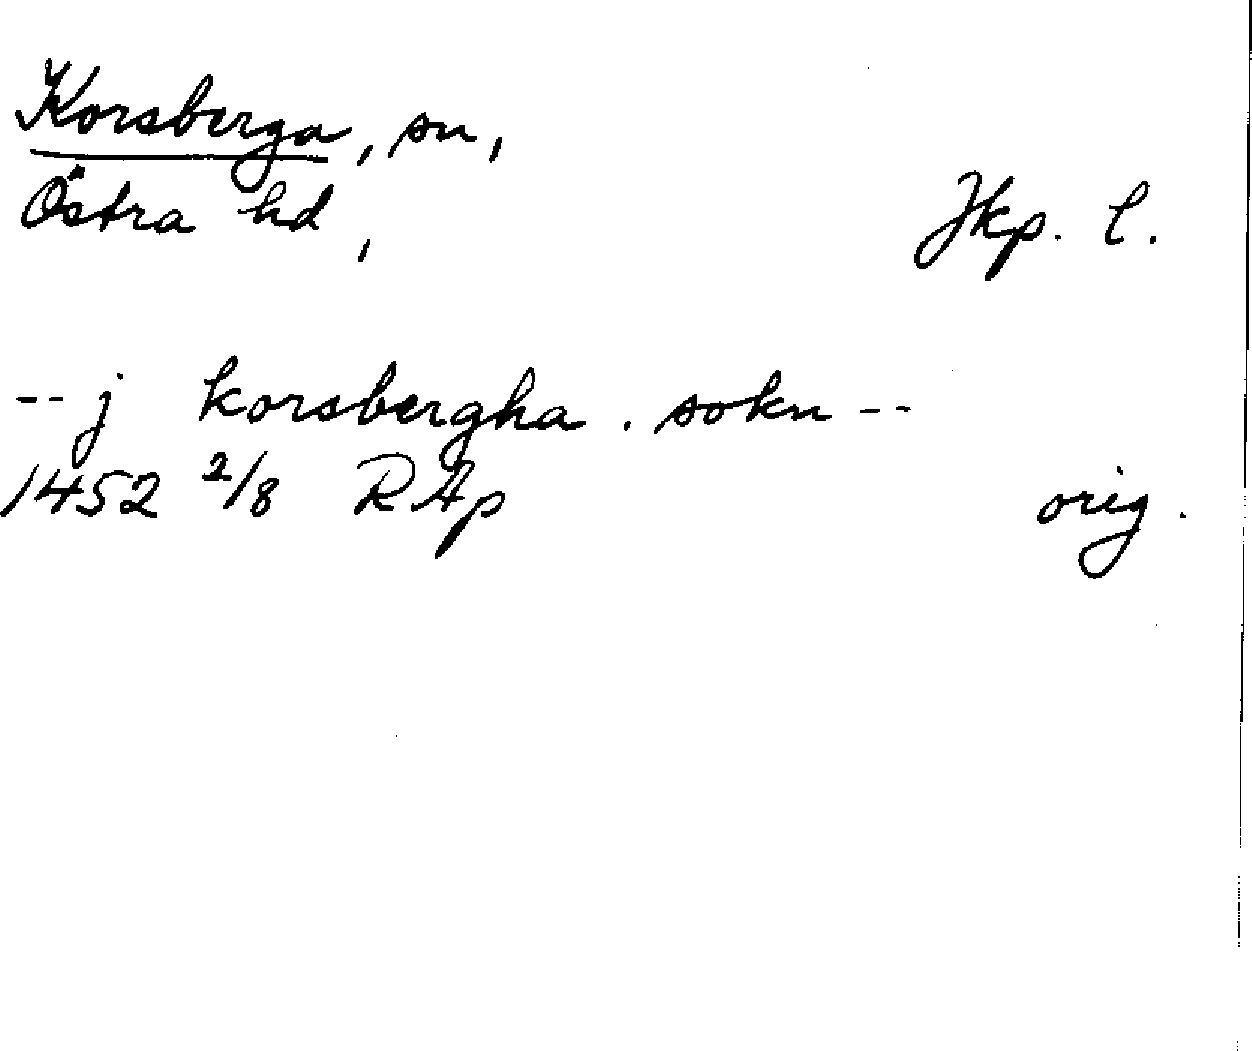 Korsberga, sn,
Östra hd,
Jkp. l.
-- j korsbergha . sokn --
1452 2/8 RAp
orig.